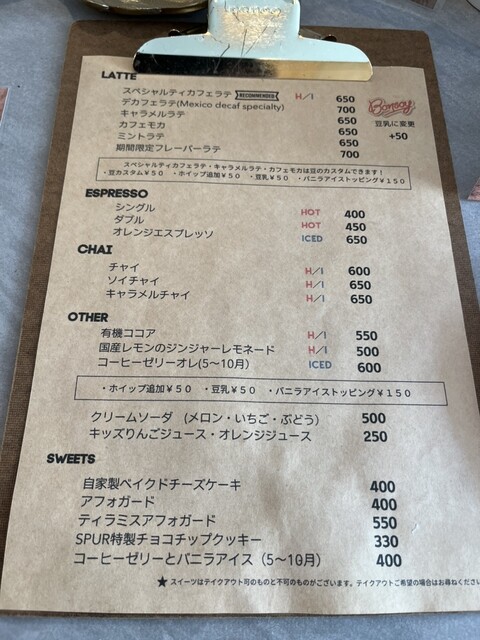 LATTE
スペシャルティカフェラテ RECOMMENDED H/I 650
デカフェラテ(Mexico decaf specialty) 700
キャラメルラテ 650
カフェモカ 650
ミントラテ 650
期間限定フレーバーラテ 700
Bonsoy
豆乳に変更
+50
スペシャルティカフェラテ・キャラメルラテ・カフェモカは豆のカスタムできます！
・豆カスタム￥50 ・ホイップ追加￥50 ・豆乳￥50 ・バニラアイストッピング￥150
ESPRESSO
シングル HOT 400
ダブル HOT 450
オレンジエスプレッソ ICED 650
CHAI
チャイ H/I 600
ソイチャイ H/I 650
キャラメルチャイ H/I 650
OTHER
有機ココア H/I 550
国産レモンのジンジャーレモネード H/I 500
コーヒーゼリーオレ(5〜10月) ICED 600
・ホイップ追加￥50 ・豆乳￥50 ・バニラアイストッピング￥150
クリームソーダ (メロン・いちご・ぶどう) 500
キッズりんごジュース・オレンジジュース 250
SWEETS
自家製ベイクドチーズケーキ 400
アフォガード 400
ティラミスアフォガード 550
SPUR特製チョコチップクッキー 330
コーヒーゼリーとバニラアイス (5〜10月) 400
★スイーツはテイクアウト可のものと不可のものがございます。テイクアウトご希望の場合はお尋ねくださ